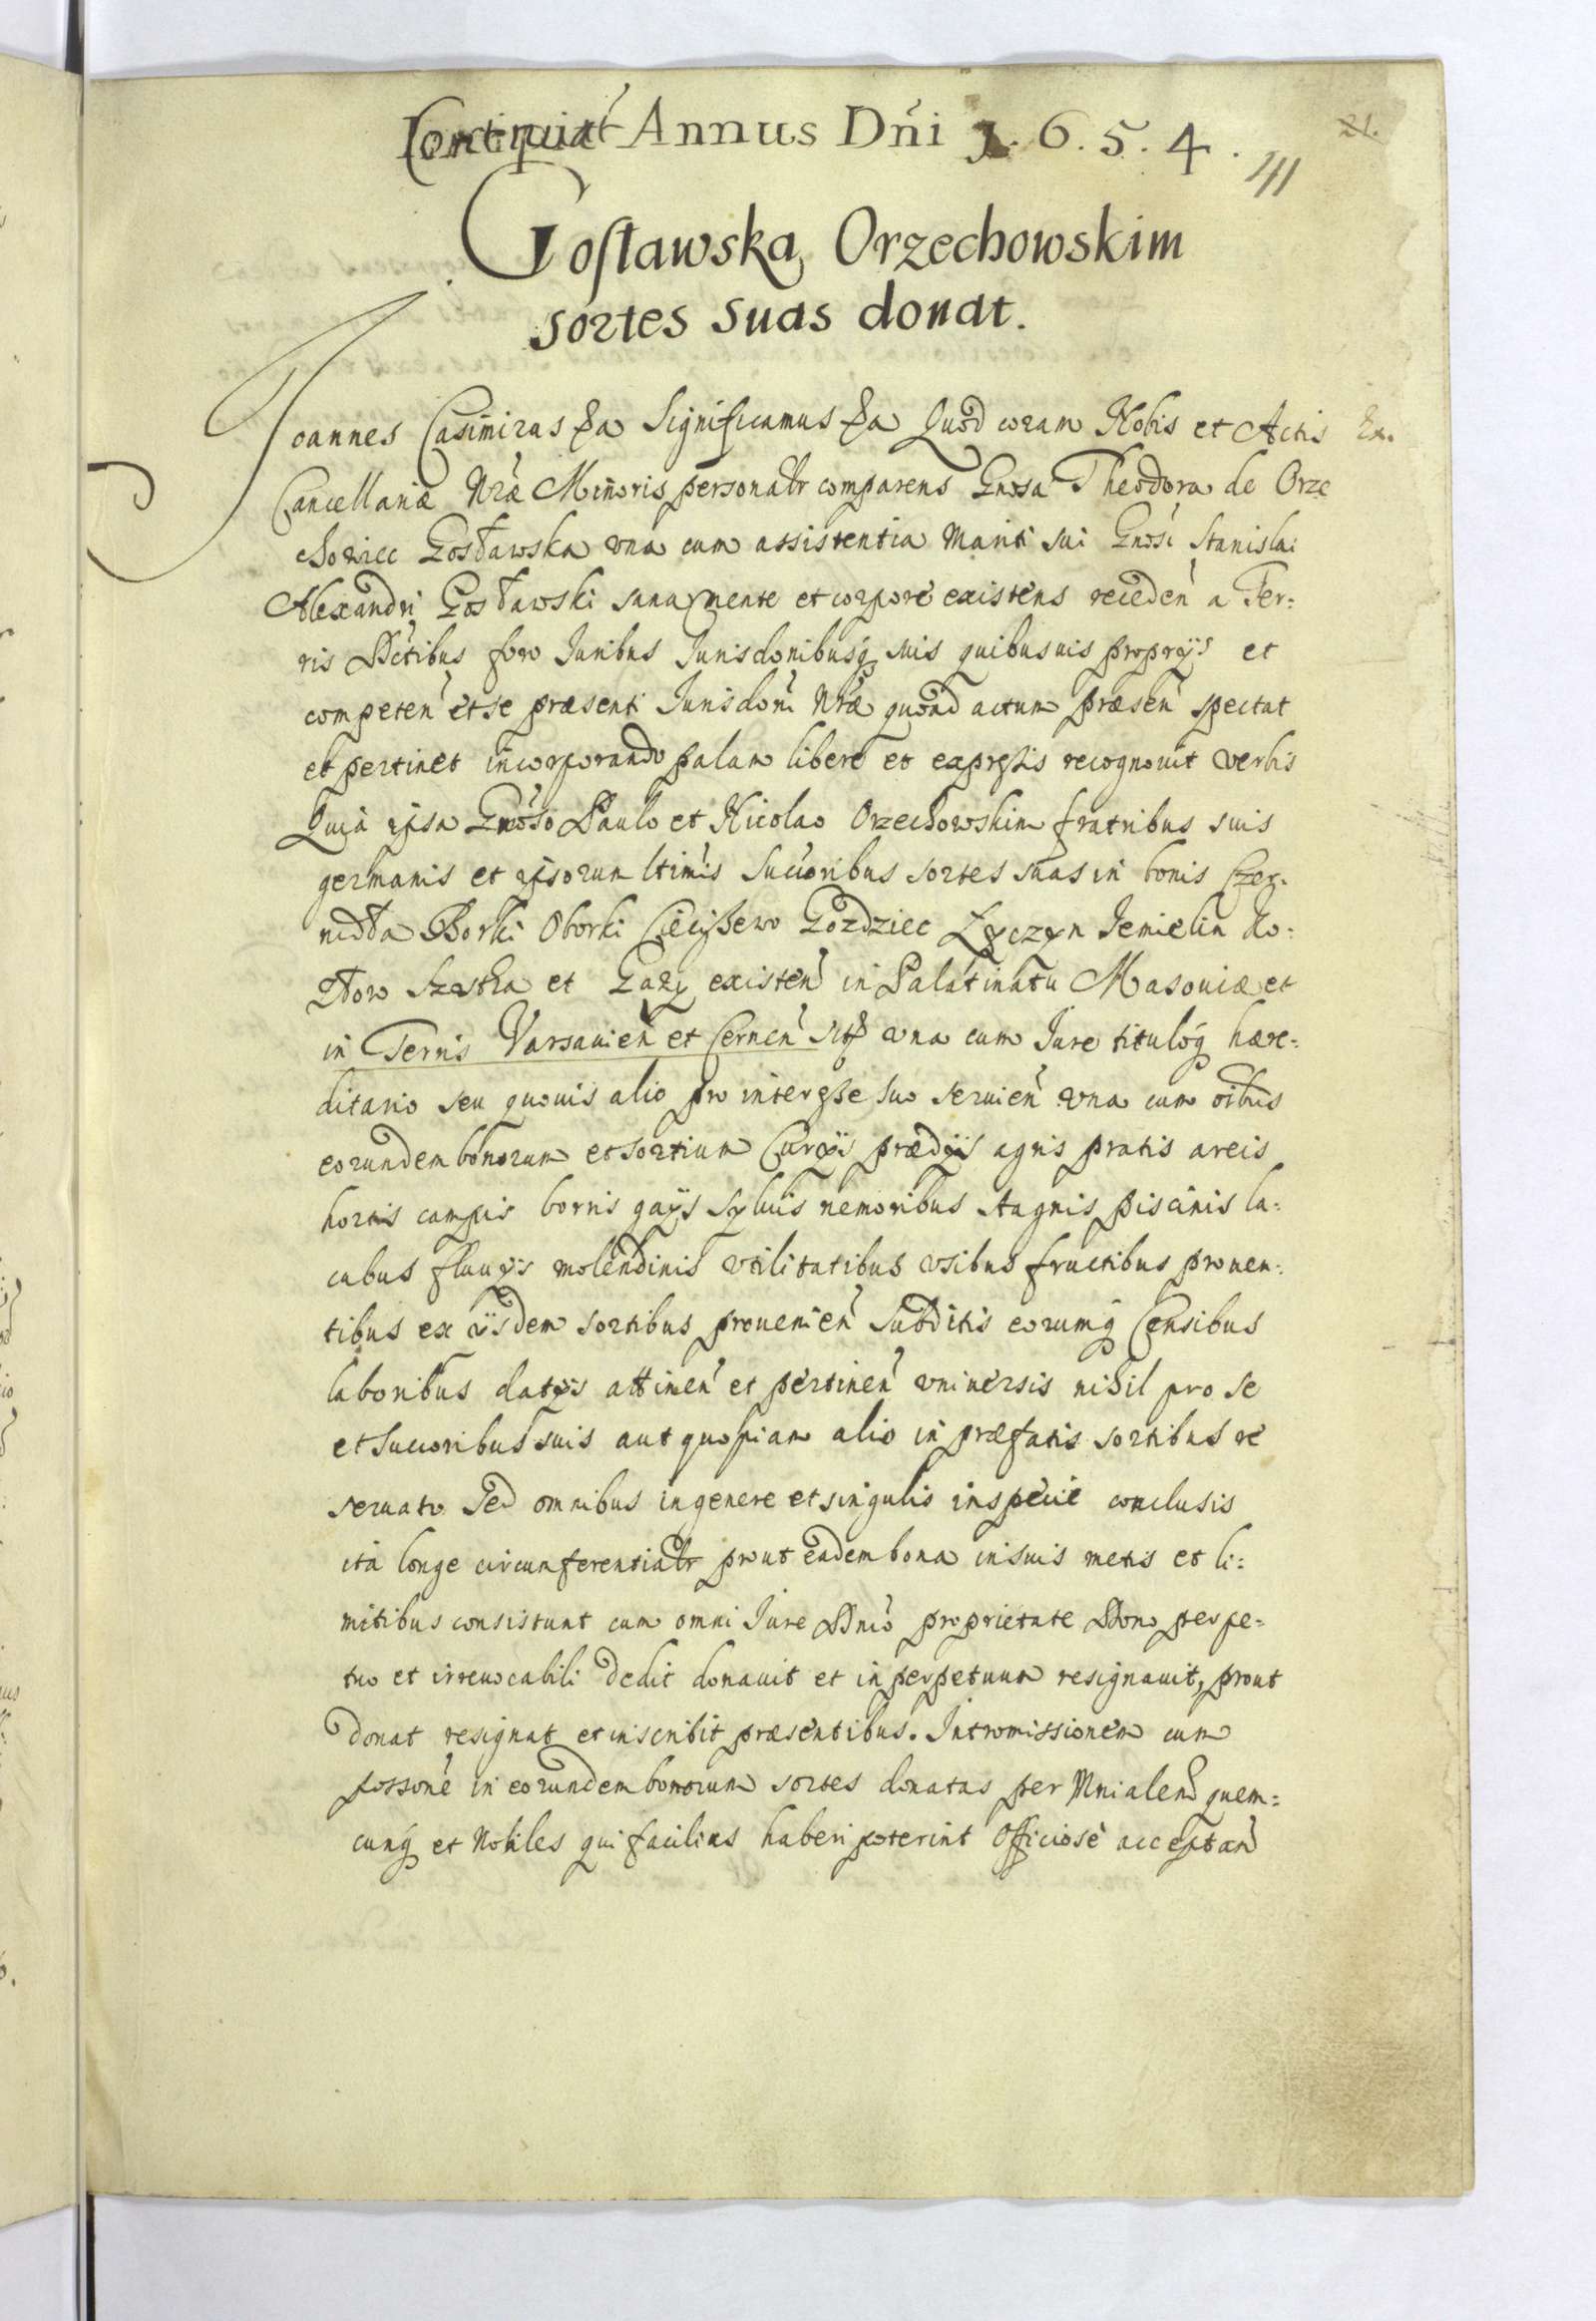 Continuat Annus Dni 1. 6. 5. 4.
21.
111
Gosławska Orzechowskim
sortes suas donat.
Joannes Casimirus &a Significamus &a Quod coram Nobis et Actis Ex.
Cancellariæ Nræ Minoris personalr comparens Gnosa Theodora de Orze
chowiec Gosławska una cum assistentia Mariti sui Gnosi Stanislai
Alexandri Gosławski sana mente et corpore existens receden a Ter:
ris Dctibus foro Juribus Jurisdonibusq suis quibusuis proprijs et
competen et se præsenti Jurisdoni Nræ quoad actum præsen spectat
et pertinet incorporando palam libere et expressis recognouit verbis
Quia ipsa Gnoso Paulo et Nicolao Orzechowskim fratribus suis
germanis et ipsorum ltimis Succoribus sortes suas in bonis Czer:
nidła Borki Oborki Cieciszewo Gozdziec Łyczyn Jemielin Ko:
złow Szostka et Gazy existen in Palatinatu Masouiæ et
in Terris Varsauien et Cernen una cum Jure tituloq hære:
ditario seu quouis alio pro interesse suo seruien una cum oibus
eorundem bonorum et sortium Curijs prædijs agris pratis areis
hortis campis borris gaijs syluis nemoribus stagnis piscinis la:
cubus fluuijs molendinis vtilitatibus vsibus fructibus prouen:
tibus ex ijsdem sortibus prouenien Subditis eorumq Censibus
laboribus datijs attinen et pertinen vniuersis nihil pro se
et Succoribus suis aut quopiam alio in præfatis sortibus re
seruato Sed omnibus in genere et singulis in specie conclusis
ita longe circumferentialr prout eadem bona in suis metis et li:
mitibus consistunt cum omni Jure Dnio proprietate Dono perpe:
tuo et irreuocabili dedit donauit et in perpetuum resignauit, prout
donat resignat et inscribit præsentibus. Intromissionem cum
possone in eorundem bonorum sortes donatas per Mnialem quem:
cunq et Nobiles qui facilius haberi poterint Officiose acceptan